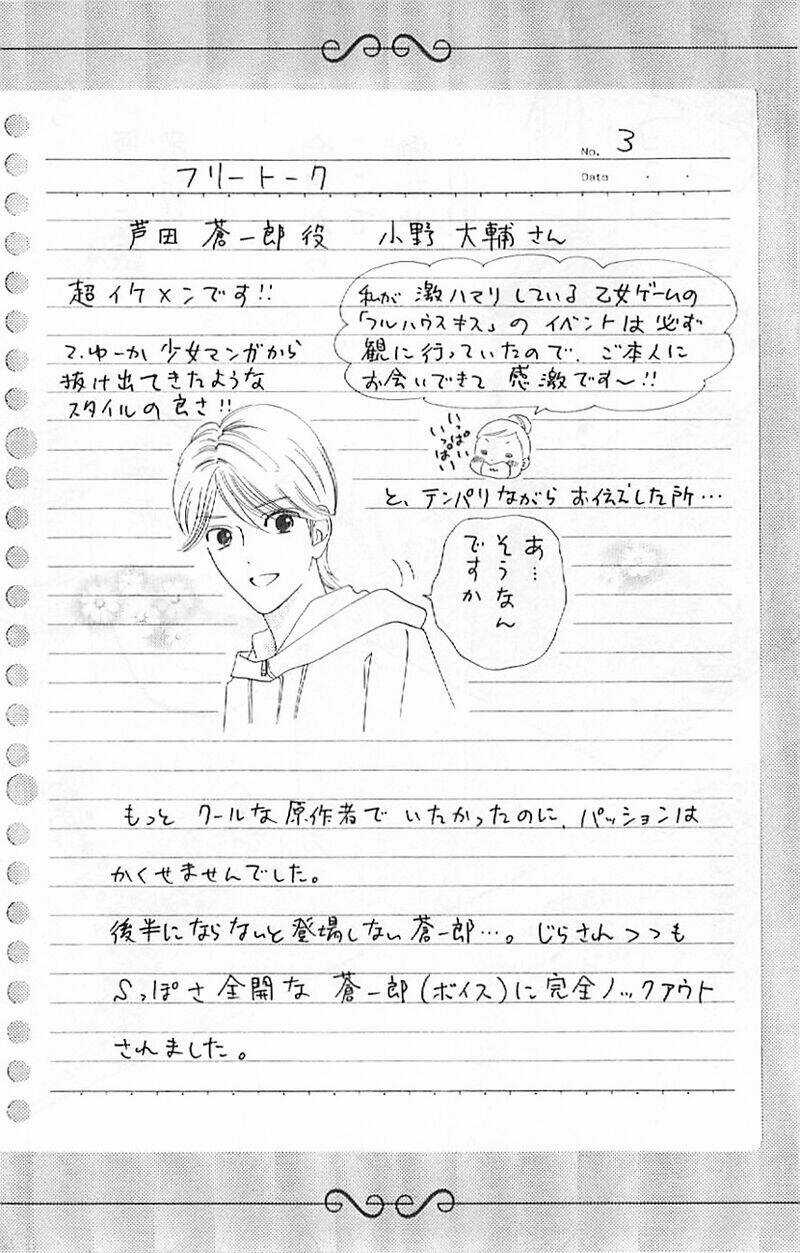 No. 3
Date
フリートーク
芦田 蒼一郎役 小野 大輔さん
超イケメンです!!
てゆーか 少女マンガから
抜け出てきたような
スタイルの良さ!!
私が 激ハマリしている 乙女ゲームの
「フルハウスキス」の イベントは 必ず
観に行っていたので、ご本人に
お会いできて 感激です〜!!
いっぱい
いっぱい
と、テンパリながら お伝えした所…
あ…
そうなん
ですか
もっと クールな 原作者で いたかったのに、パッションは
かくせませんでした。
後半にならないと登場しない 蒼一郎…。じらさんつつも
Sっぽさ 全開な 蒼一郎(ボイス)に 完全ノックアウト
されました。